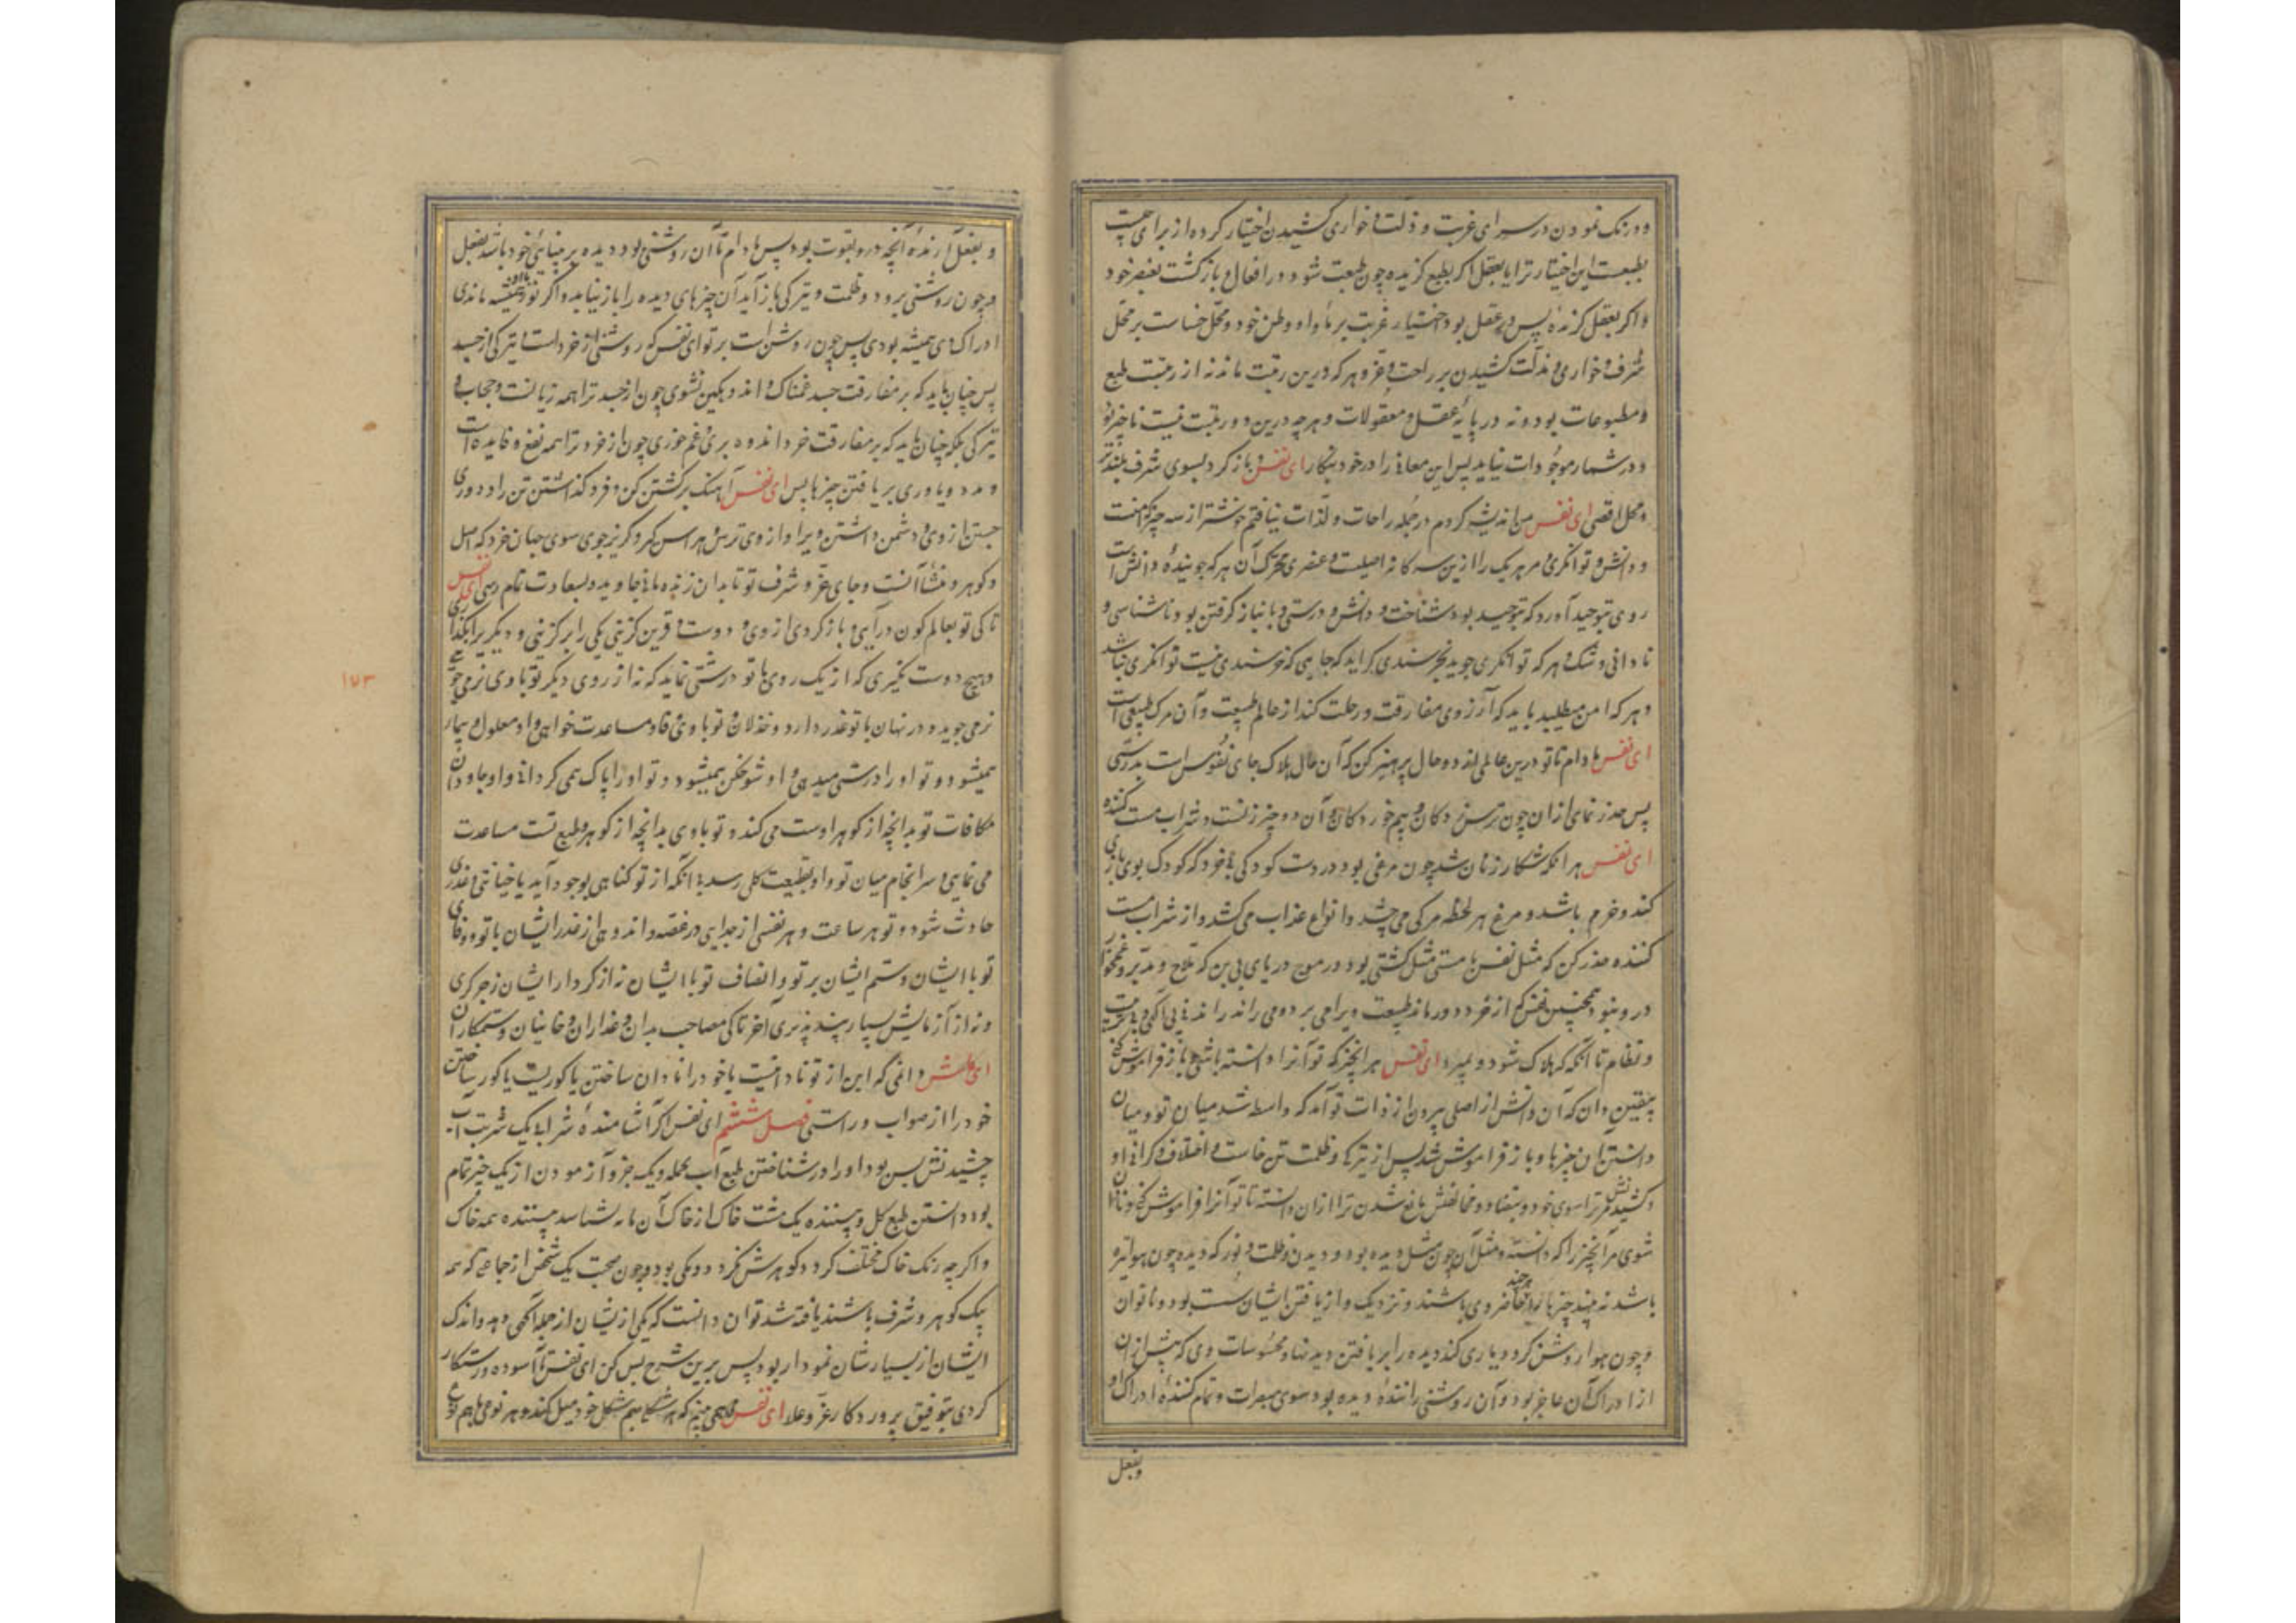 و درنک نمودن در سرای غربت و ذلت و خواری کشیدن اختیار کرده از برای چیست
بطبعست این اختیار ترا یا بعقل اگر بطبع گزیده چون طبعت شود در افعال و بازگشت بعنصر خود
و اگر بعقل گزیده پس در عقل بود اختیار غربت بر ماوا و وطن خود و محل خساست بر محل
شرف و خواری و مذلت کشیدن بر راحت و عز و هر که درین رتبت ماند نه از رتبت طبع
و مطبوعات بود و نه در پایه عقل و معقولات و هر چه درین دو رتبت نیست ناچیز بود
و در شمار موجودات نیاید پس این معانی را در خود بنگار ای نفس و باز گرد بسوی شرف بلندتر
و محل اقصی ای نفس من اندیشه کردم در جمله راحات و لذات نیافتم خوشتر از سه چیز امنست
و دانش و توانگری و مر هر یک را ازین سه گانه اصلیست و عنصری محرک آن هر که جوینده دانش است
روی بتوحید آورد که بتوحید بود شناخت و دانش و درستی و با نیاز گرفتن بود ناشناسی و
نادانی و شک و هر که توانگری جوید بخرسندی گراید که جایی که خرسندی نیست توانگری نباشد
و هر که امن میطلبد باید که آرزوی مفارقت و رحلت کند از عالم طبیعت و آن مرگ طبیعی است
ای نفس مادام تا تو درین عالمی از دو حال پرهیز کن که آن حال هلاک جای نفوس است بدرستی
پس حذر نمای ازان چون ترسندگان و بیم خوردگان و آن دو چیز زنست و شراب مست کننده
ای نفس هر انکه شکار زنان شد چون مرغی بود در دست کودکی بی خرد که کودک بوی بازی
کند و خرم باشد و مرغ هر لحظه مرگی می چشد و انواع عذاب می کشد و از شراب مست
کننده حذر کن که مثل نفس با مستی مثل کشتی بود در موج دریای بی بن که ملاح و مدبر و غمخوار
درو نبود همچنین نفس که از خرد دور ماند طبیعت ویرا می برد و می راند راندن بی آگهی و بی ترتیب
و نظام تا آنگه که هلاک شود و بمیرد ای نفس هر آنچیز که تو آنرا دانسته باشی و باز فراموش کنی
بیقین دان که آن دانش از اصلی بیرون از ذات تو آمد که واسطه شد میان تو و میان
دانستن آن چیزها و باز فراموش شد پس از تیرگی و ظلمت تن خاست و اختلاف و گرانی او
و کشیدنش مر ترا سوی خود و بتضاد و مخالفتش مانع شدن ترا ازان دانسته تا تو آنرا فراموش کنی و نادان
شوی مر آنچیز را که دانسته و مثل آن چون مثل دیده بود و دیدن و ظلمت و نور که دیده چون هوا تیره
باشد نه بیند چیزها را هر چند حاضر وی باشند و نزدیک و از یافتن ایشان سست بود و ناتوان
و چون هوا روشن گردد یاری کند دیده را بر یافتن دیدنیها و محسوسات وی که پیش ازان
از ادراک آن عاجز بود و آن روشنی راننده دیده بود سوی مبصرات و تمام کننده ادراک او
و بفعل
و بفعل آرنده آنچه درو بقوت بود پس مادام تا آن روشنی بود دیده بر بینائی خود باشد بفعل
و چون روشنی برود و ظلمت و تیرگی باز آید آن چیزهای دیده را باز نیابد و اگر نور با او همیشه ماندی
ادراک وی همیشه بودی پس چون روشن است بر تو ای نفس که روشنی از خردست و تیرگی از جسد
پس چنان باید که بر مفارقت جسد غمناک و اندوهگین نشوی چون از جسد ترا همه زیانست و حجاب و
تیرگی بلکه چنان باید که بر مفارقت خرد اندوه بری و غم خوری چون از خرد ترا همه نفع و فایده است
و مدد و یاوری بر یافتن چیزها پس ای نفس آهنگ برگشتن کن و فرو گذاشتن تن را و دوری
جستن از وی و دشمن داشتن ویرا و از وی ترس و هراس گیر و گریز جوی سوی جهان خرد که اصل
و گوهر و منشأ آنست و جای عز و شرف تو تا بدان زنده مانی جاوید و بسعادت تمام رسی ای نفس
تا کی تو بعالم کون در آیی و باز گردی از وی و دوست و قرین گزینی یکی را برگزینی و دیگر یرا بگذاری
و هیچ دوست نگیری که از یک روی با تو درشتی نماید که نه از روی دیگر تو با وی نرمی جوئی
نرمی جوید و در نهان با تو غدر دارد و خذلان و تو با وی وفا و مساعدت خواهی و او معلول و بیمار
همیشود و تو او را درستی میدهی و او شوخگن همیشود و تو او را پاک همی گردانی و او جاودان
مکافات تو بدانچه از گوهر اوست می کند و تو با وی بدانچه از گوهر و طبع تست مساعدت
می نمایی و سرانجام میان تو و او بقطیعت کلی رسد بی آنکه از تو گناهی بوجود آید یا خیانتی و غدری
حادث شود و تو هر ساعت و هر نفسی از جدایی در غصه و اندوهی از غدر ایشان با تو و وفای
تو با ایشان و ستم ایشان بر تو و انصاف تو با ایشان نه از کردار ایشان زجر گری
و نه از آزمایش بسیار پند پذیری آخر تا کی مصاحب بدان و غداران و خاینان و ستمکاران
دانمی که این از تو نادانیست یا خود را نادان ساختن یا کوریست یا کور ساختن
خود را از صواب و راستی فصل ششم ای نفس اگر آشامندهٔ شراب یک شربت آب
چشیدنش بس بود او را در شناختن طبع آب بجمله و یک جزو آزمودن از یک چیز تمام
بود دانستن طبع کل و بیننده یک مشت خاک از خاک آن مایه شناسد بیننده همه خاک
و اگر چه رنگ خاک مختلف گردد گوهرش نگردد و یکی بود و چون صحبت یک شخص از جماعتی که همه
بیک گوهر و شرف باشند یافته شد توان دانست که یکی از ایشان از جمله آگهی دهد و اندک
ایشان از بسیارشان نمودار بود پس برین شرح بس کن ای نفس تا آسوده و رستگار
گردی بتوفیق پروردگار عز و علا ای نفس همی بینم که هر شکلی هم شکل خود میل کند و هر نوعی با هم نوع
۱۷۳